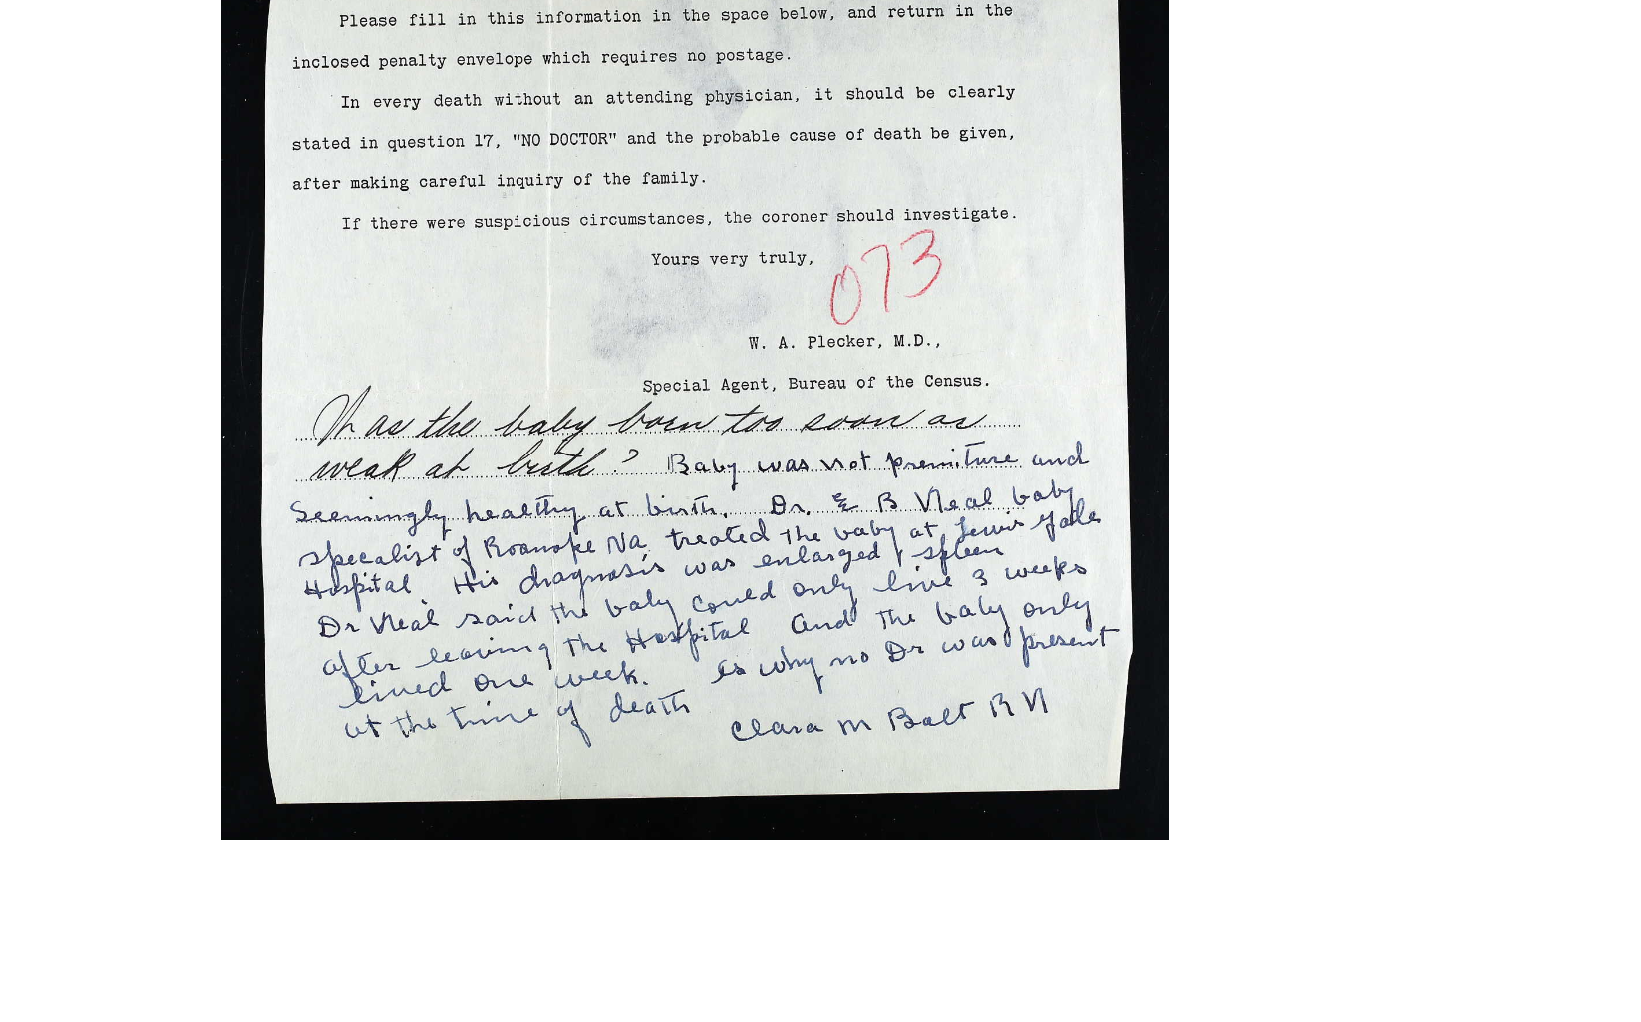 Please fill in this information in the space below, and return in the
inclosed penalty envelope which requires no postage.
In every death without an attending physician, it should be clearly
stated in question 17, "NO DOCTOR" and the probable cause of death be given,
after making careful inquiry of the family.
If there were suspicious circumstances, the coroner should investigate.
Yours very truly,
073
W. A. Plecker, M.D.,
Special Agent, Bureau of the Census.
Was the baby born too soon or
weak at birth? Baby was not premiture and
Seemingly healthy at birth. Dr. E B Neal baby
specalist of Roanoke Va, treated the baby at Lewis Gale
Hospital. His diagnosis was enlarged spleen
Dr Neal said the baby could only live 3 weeks
after leaving the Hospital and the baby only
lived one week. is why no Dr was present
at the time of death
Clara M Balt R N